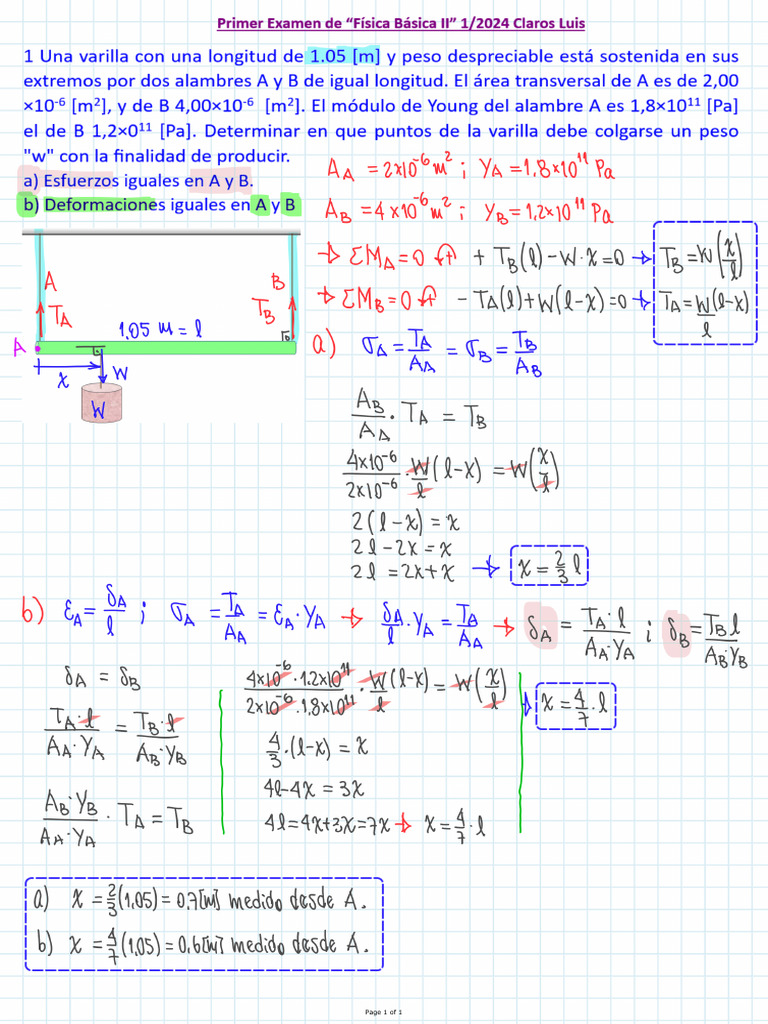 Primer Examen de “Física Básica II” 1/2024 Claros Luis
1 Una varilla con una longitud de 1.05 [m] y peso despreciable está sostenida en sus
extremos por dos alambres A y B de igual longitud. El área transversal de A es de 2,00
×10⁻⁶ [m²], y de B 4,00×10⁻⁶ [m²]. El módulo de Young del alambre A es 1,8×10¹¹ [Pa]
el de B 1,2×0¹¹ [Pa]. Determinar en que puntos de la varilla debe colgarse un peso
"w" con la finalidad de producir.
a) Esfuerzos iguales en A y B.
b) Deformaciones iguales en A y B
A_A = 2×10⁻⁶ m² ; Y_A = 1,8×10¹¹ Pa
A_B = 4×10⁻⁶ m² ; Y_B = 1,2×10¹¹ Pa
A
B
T_A
T_B
1,05 m = l
T_B
A
x
W
W
→ ΣM_A = 0 + T_B(l) - W·x = 0 → T_B = W(x/l)
→ ΣM_B = 0 - T_A(l) + W(l-x) = 0 → T_A = W(l-x)/l
a) σ_A = T_A/A_A = σ_B = T_B/A_B
A_B/A_A · T_A = T_B
4×10⁻⁶/2×10⁻⁶ · W/l (l-x) = W(x/l)
2(l-x) = x
2l - 2x = x
2l = 2x + x → x = 2/3 l
b) ε_A = δ_A/l ; σ_A = T_A/A_A = ε_A·Y_A → δ_A/l · Y_A = T_A/A_A → δ_A = T_A·l/A_A·Y_A ; δ_B = T_B l/A_B·Y_B
δ_A = δ_B
T_A·l/A_A·Y_A = T_B·l/A_B·Y_B
A_B·Y_B/A_A·Y_A · T_A = T_B
4×10⁻⁶·1.2×10¹¹/2×10⁻⁶·1.8×10¹¹ · W/l (l-x) = W(x/l)
4/3 ·(l-x) = x
4l - 4x = 3x
4l = 4x + 3x = 7x → x = 4/7 · l
→ x = 4/7 · l
a) x = 2/3 (1.05) = 0.7[m] medido desde A.
b) x = 4/7 (1.05) = 0.6[m] medido desde A.
Page 1 of 1